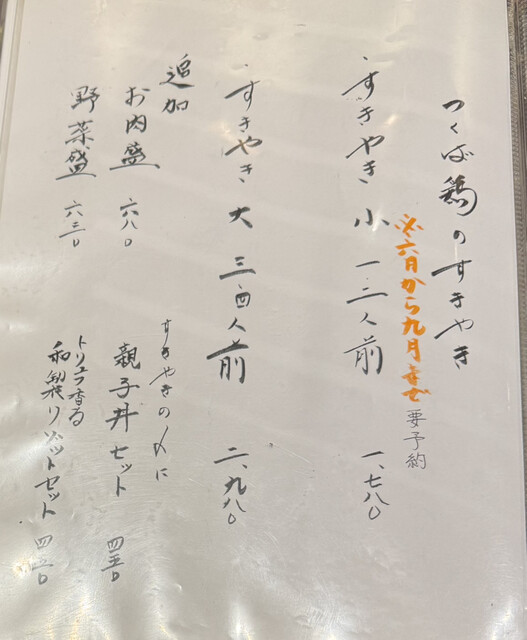 つくば鶏のすきやき
※六月から九月まで要予約
すきやき 小 一・二人前 一、七八〇
すきやき 大 三・四人前 二、九八〇
追加
お肉盛 六八〇
野菜盛 六三〇
すきやきの〆に
親子丼セット 四五〇
トリュフ香る
和製リゾットセット